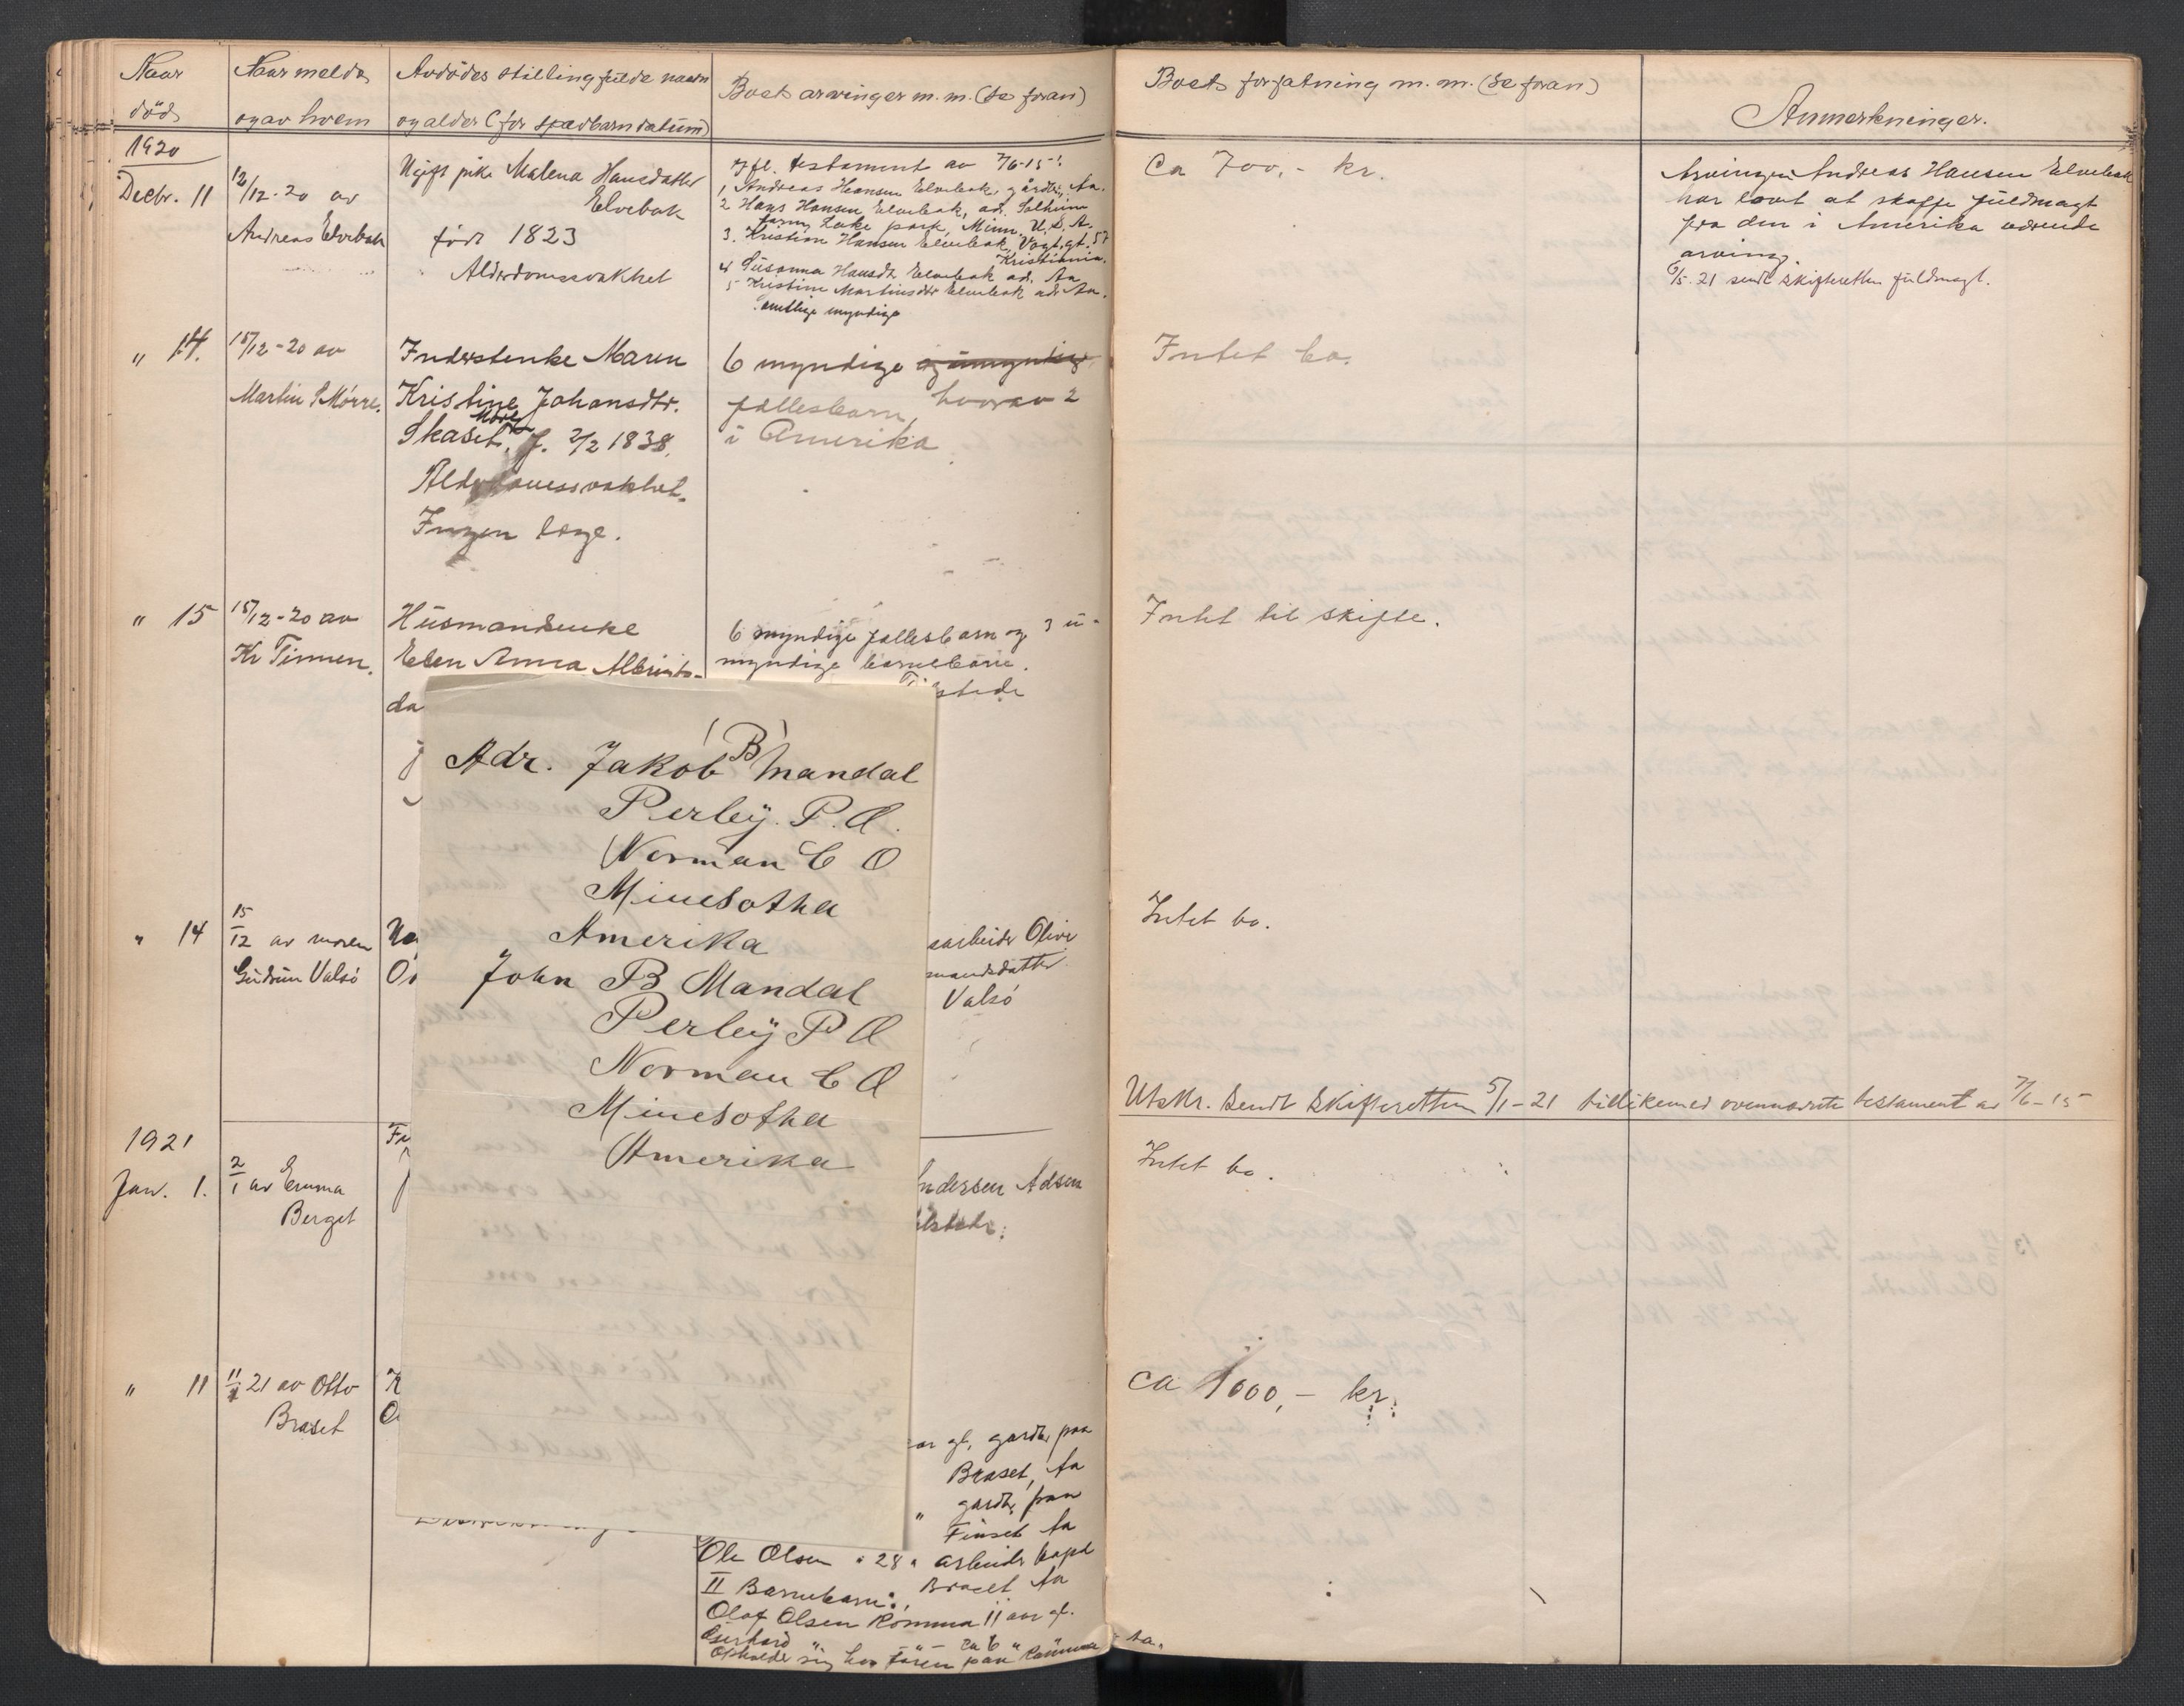 Naar
död
Naar meldt
og av hvem
Avdödes stilling fulde navn
og alder (for spædbarn datum)
Boets arvinger m. m. (se foran)
Boets forfatning m. m. (se foran)
Anmerkninger.
1920
Decbr. 11
12/12-20 av
Andreas Elvebak
Ugift pike Malena Hansdatter
Elvebak
född 1823
Alderdomssvakhet
Ifl. testament av 7/6-15:
1, Andreas Hansen Elvebak, gårdbr., Aa.
2 Hans Hansen Elvebak, ad. Solheim
farm, Lake park, Minn, U. S. A.
3. Kristian Hansen Elvebak, Vogtgt. 57
Kristiania.
4 Susanna Hansdt Elvebak ad. Aa
5 Kristine Martinsdtr Elvebak adr Aa.
samtlige myndige
Ca 700,- kr.
Arvingen Andreas Hansen Elvebak
har lovt at skaffe fuldmagt
fra den i Amerika værende
arving.
5/1-21 sendt skifteretten fuldmagt.
" 14.
15/12-20 av
Martin Mörre.
Inderstenke Maren
Kristine Johansdtr.
Mörre
Skaset. f. 2/2 1838.
Alderdomssvakhet.
Ingen læge.
6 myndige og umyndige
fællesbarn, hvorav 2
i Amerika
Intet bo.
" 15
15/12-20 av
Kr Tinnen.
Husmandsenke
Elen Anna Albrigts-
da
6 myndige fællesbarn og 3 u-
myndige barnebarn.
stede
Intet til skifte.
Adr. Jakob (B) Mandal
Perley. P. O.
Norman C O
Minesotha
Amerika
John B Mandal
Perley P O
Norman C O
Minesotha
Amerika
" 14
15/12 av moren
Gudrun Valsö
sarbeider Oliver
mandsdatter
Valsö
Intet bo.
Utskr. sendt Skifteretten 5/1-21 tillikemed ovennævnte testament av 7/6-15
1921
Jan. 1.
2/1 av Emma
Berget
Andersen Adsen
tilstede.
Intet bo.
" 11
11/1 21 av Otto
Braset
K
O
ca 1000,- kr.
aar gl. gardbr. paa
Braset, Aa
" gardbr. paa
Finset Aa
Ole Olsen " 28 " arbeider bopæl
Braset Aa
II Barnebarn:
Olaf Olsen Römma 11 aar gl.
Gerhard " " ca 6 "
Opholder sig hos faren paa Römma - Aa.